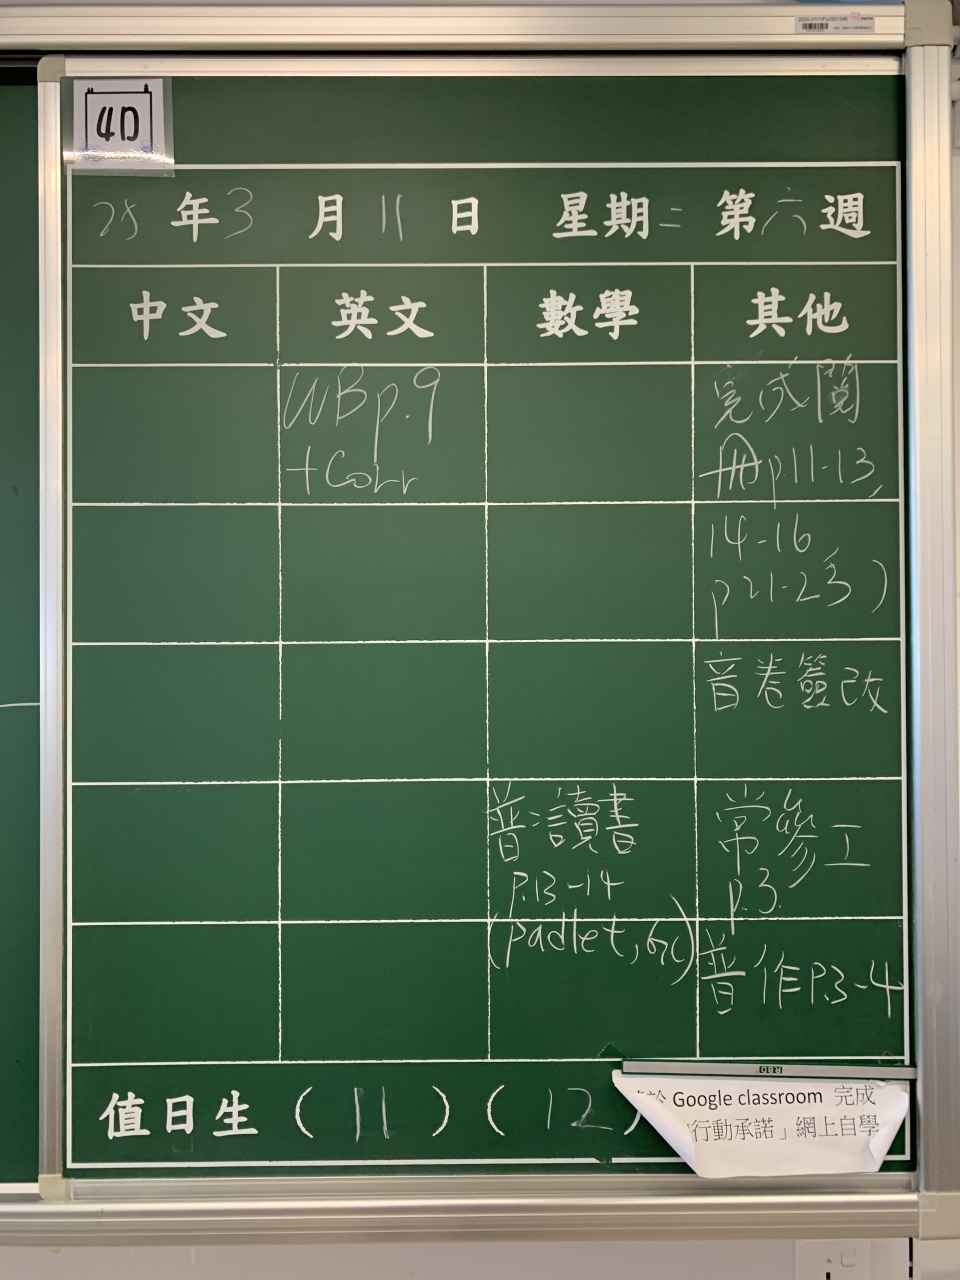 4D
25 年 3 月 11 日 星期 二 第 六 週
中文 英文 數學 其他
WB p.9
+Corr
完成閱
冊p.11-13,
14-16
p21-23)
音卷簽改
普讀書
p.13-14
(padlet, GC)
常參工
p.3.
普作P.3-4
值日生 ( 11 ) ( 12 )
於 Google classroom 完成
行動承諾」網上自學
RBD